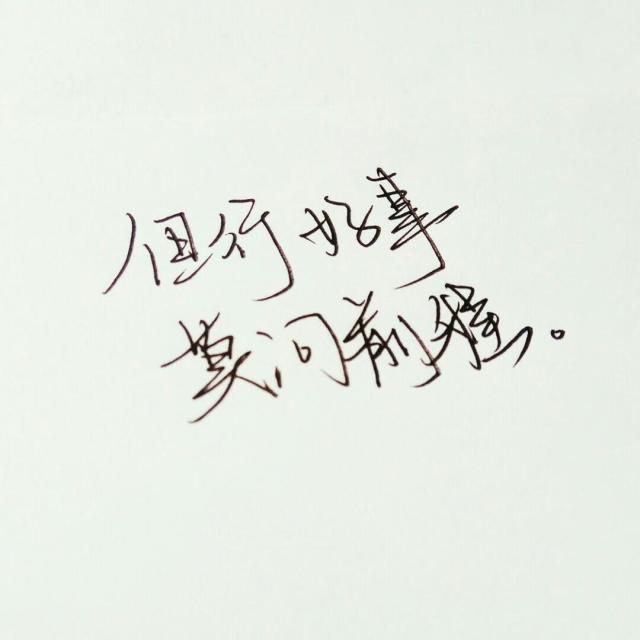 但行好事
莫问前程。